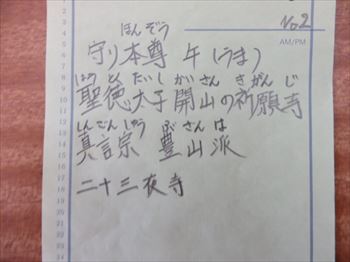 No2
AM/PM
ほんぞう
守り本尊 午(うま)
しょうとくたいし かいさん きがんじ
聖徳太子開山の祈願寺
しんごんしゅう ぶざんは
真言宗 豊山派
二十三夜寺